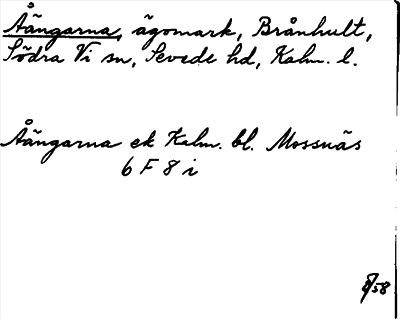 Åängarna, ägomark, Brånhult,
Södra Vi sn, Sevede hd, Kalm. l.
Åängarna ek Kalm. bl. Mossnäs
6 F 8 i
8/58